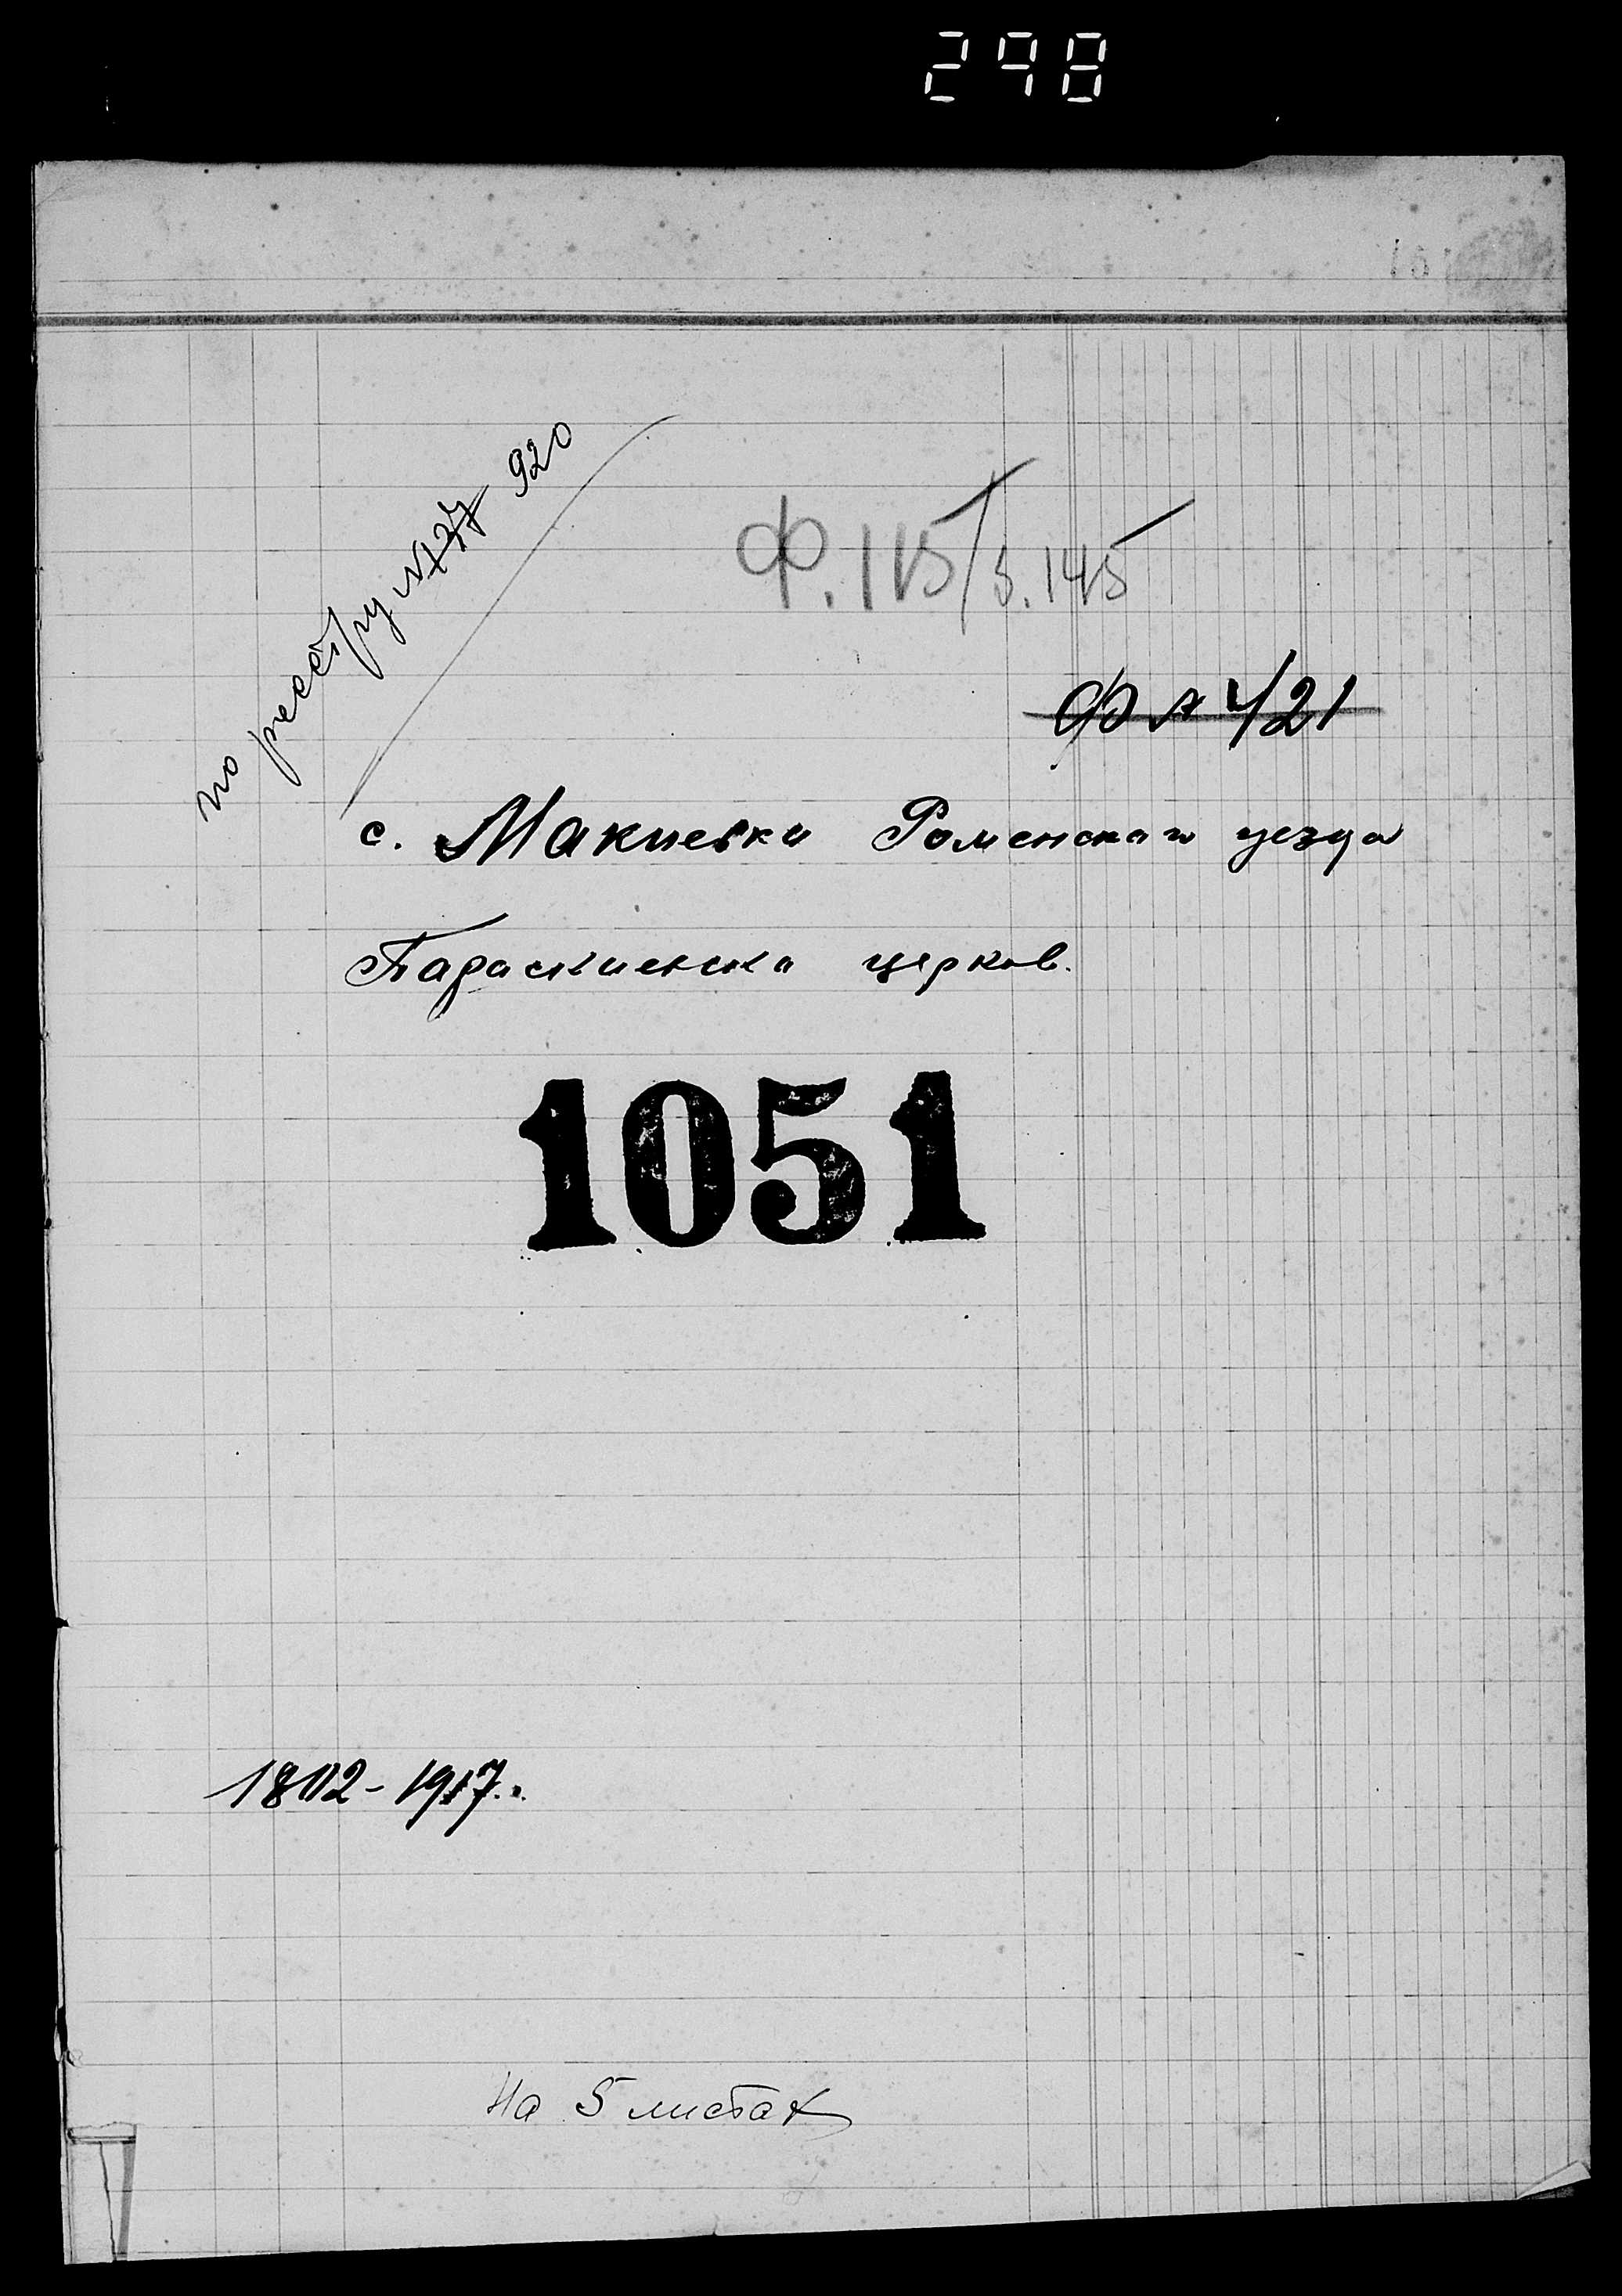 298
по реестру № 737 920
Ф. 1115/5.145
Ф № 421
с. Макиевки Роменскаго уезда
Параскиевска церков.
1051
1802-1917.
На 5 листах